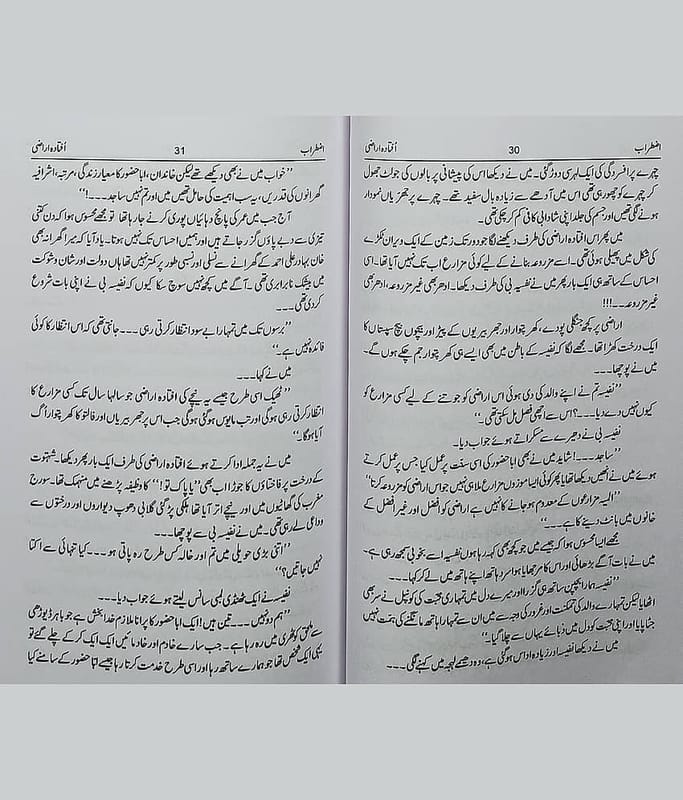 اضطراب 30 افتادہ اراضی
چہرے پر افسردگی کی ایک لہر سی دوڑ گئی۔ میں نے دیکھا اس کی پیشانی پر بالوں کی جو لٹ جھول
کر چہرے کو چھو رہی تھی اس میں آدھے سے زیادہ بال سفید تھے۔ چہرے پر جھریاں نمودار
ہونے لگی تھیں اور جسم کی جلد اپنی شادابی کافی کم کر چکی تھی۔
میں پھر اس افتادہ اراضی کی طرف دیکھنے لگا جو دور تک زمین کے ایک ویران ٹکڑے
کی شکل میں پھیلی ہوئی تھی۔ اسے مزروعہ بنانے کے لیے کوئی مزارع اب تک نہیں آیا تھا۔ اسی
احساس کے ساتھ ہی ایک بار پھر میں نے نفیسہ بی کی طرف دیکھا۔ ادھر بھی غیر مزروعہ، ادھر بھی
غیر مزروعہ۔۔۔!!!
اراضی پر کچھ جنگلی پودے، کھر پتوار اور جھر بیریوں کے پیڑ اور بیچوں بیچ سپستاں کا
ایک درخت کھڑا تھا۔ مجھے لگا کہ نفیسہ کے باطن میں بھی ایسے ہی کھر پتوار جم چکے ہوں گے۔
میں نے پوچھا۔۔۔
’’نفیسہ تم نے اپنے والد کی دی ہوئی اس اراضی کو جوتنے کے لیے کسی مزارع کو
کیوں نہیں دے دیا۔۔۔؟ اس سے اچھی فصل مل سکتی تھی۔‘‘
نفیسہ بی نے دھیرے سے مسکراتے ہوئے جواب دیا۔
’’ساجد۔۔۔! شاید میں نے بھی ابا حضور کی اسی سنت پر عمل کیا جس پر عمل کرتے
ہوئے میں نے انھیں دیکھا تھا یا پھر کوئی ایسا موزوں مزارع ملا ہی نہیں جو اس اراضی کو مزروعہ کرتا‘‘
’’المیہ مزارعوں کے معدوم ہو جانے کا نہیں ہے اراضی کو افضل اور غیر افضل کے
خانوں میں بانٹ دینے کا ہے۔۔۔‘‘
مجھے ایسا محسوس ہوا کہ جیسے میں جو کچھ بھی کہہ رہا ہوں نفیسہ اسے بخوبی سمجھ رہی ہے۔
میں نے بات آگے بڑھائی اور اس کا مرجھایا ہوا سرد ہاتھ اپنے ہاتھ میں لے کر کہا۔۔۔
’’نفیسہ ہمارا بچپن ساتھ ہی گزرا اور میرے دل میں تمہاری محبت کی کونپل نے سر بھی
اٹھایا لیکن تمہارے والد کی تمکنت اور غرور کی وجہ سے میں ان سے تمہارا ہاتھ مانگنے کی ہمت نہیں
جٹا پایا اور اپنی محبت کو دل میں دبائے یہاں سے چلا گیا۔‘‘
میں نے دیکھا نفیسہ اور زیادہ اداس ہو گئی ہے، وہ دھیمے لہجہ میں کہنے لگی۔۔۔
اضطراب 31 افتادہ اراضی
’’خواب میں نے بھی دیکھے تھے لیکن خاندان، ابا حضور کا معیارِ زندگی، مرتبہ، اشرافیہ
گھرانوں کی قدریں، یہ سب اہمیت کی حامل تھیں میں اور تم نہیں ساجد۔۔۔!‘‘
آج جب میں عمر کی پانچ دہائیاں پوری کرنے جا رہا تھا تو مجھے محسوس ہوا کہ دن کتنی
تیزی سے دبے پاؤں گزر جاتے ہیں اور ہمیں احساس تک نہیں ہوتا۔ یاد آیا کہ میرا گھرانہ بھی
خان بہادر علی احمد کے گھرانے سے نسلی اور نسبی طور پر کمتر نہیں تھا ہاں دولت اور شان و شوکت
میں بیشک نابرابری تھی۔ آگے میں کچھ نہیں سوچ سکا کیوں کہ نفیسہ بی نے اپنی بات شروع
کر دی تھی۔۔۔
’’برسوں تک میں تمہارا بے سود انتظار کرتی رہی۔۔۔ جانتی تھی کہ اس انتظار کا کوئی
فائدہ نہیں ہے۔‘‘
میں نے کہا۔۔۔
’’ٹھیک اسی طرح جیسے یہ نیچے کی افتادہ اراضی جو سالہا سال تک کسی مزارع کا
انتظار کرتی رہی ہوگی اور تب مایوس ہو گئی ہوگی جب اس پر جھر بیریاں اور فالتو کا کھر پتوار اُگ
آیا ہوگا۔‘‘
میں نے یہ جملہ ادا کرتے ہوئے افتادہ اراضی کی طرف ایک بار پھر دیکھا۔ شہتوت
کے درخت پر فاختاؤں کا جوڑا اب بھی ’’یا پاک تو!‘‘ کا وظیفہ پڑھنے میں منہمک تھا۔ سورج
مغرب کی گھاٹیوں میں اور نیچے اتر آیا تھا ہلکی پڑ گئی گلابی دھوپ دیواروں اور درختوں سے
وداعی لے رہی تھی۔ میں نے نفیسہ بی سے پوچھا۔۔۔
’’اتنی بڑی حویلی میں تم اور خالہ کس طرح رہ پاتی ہو۔۔۔ کیا تنہائی سے اکتا
نہیں جاتیں؟‘‘
نفیسہ نے ایک ٹھنڈی لمبی سانس لیتے ہوئے جواب دیا۔۔۔
’’ہم دو نہیں۔۔۔ تین ہیں! ایک ابا حضور کا پرانا ملازم خدا بخش ہے جو باہر ڈیوڑھی
سے ملحق کوٹھری میں رہ رہا ہے۔ جب سارے خادم اور خادمائیں ایک ایک کر کے چلے گئے تو
یہی ایک شخص تھا جو ہمارے ساتھ رہا اور اسی طرح خدمت کرتا رہا جیسے ابا حضور کے سامنے کیا